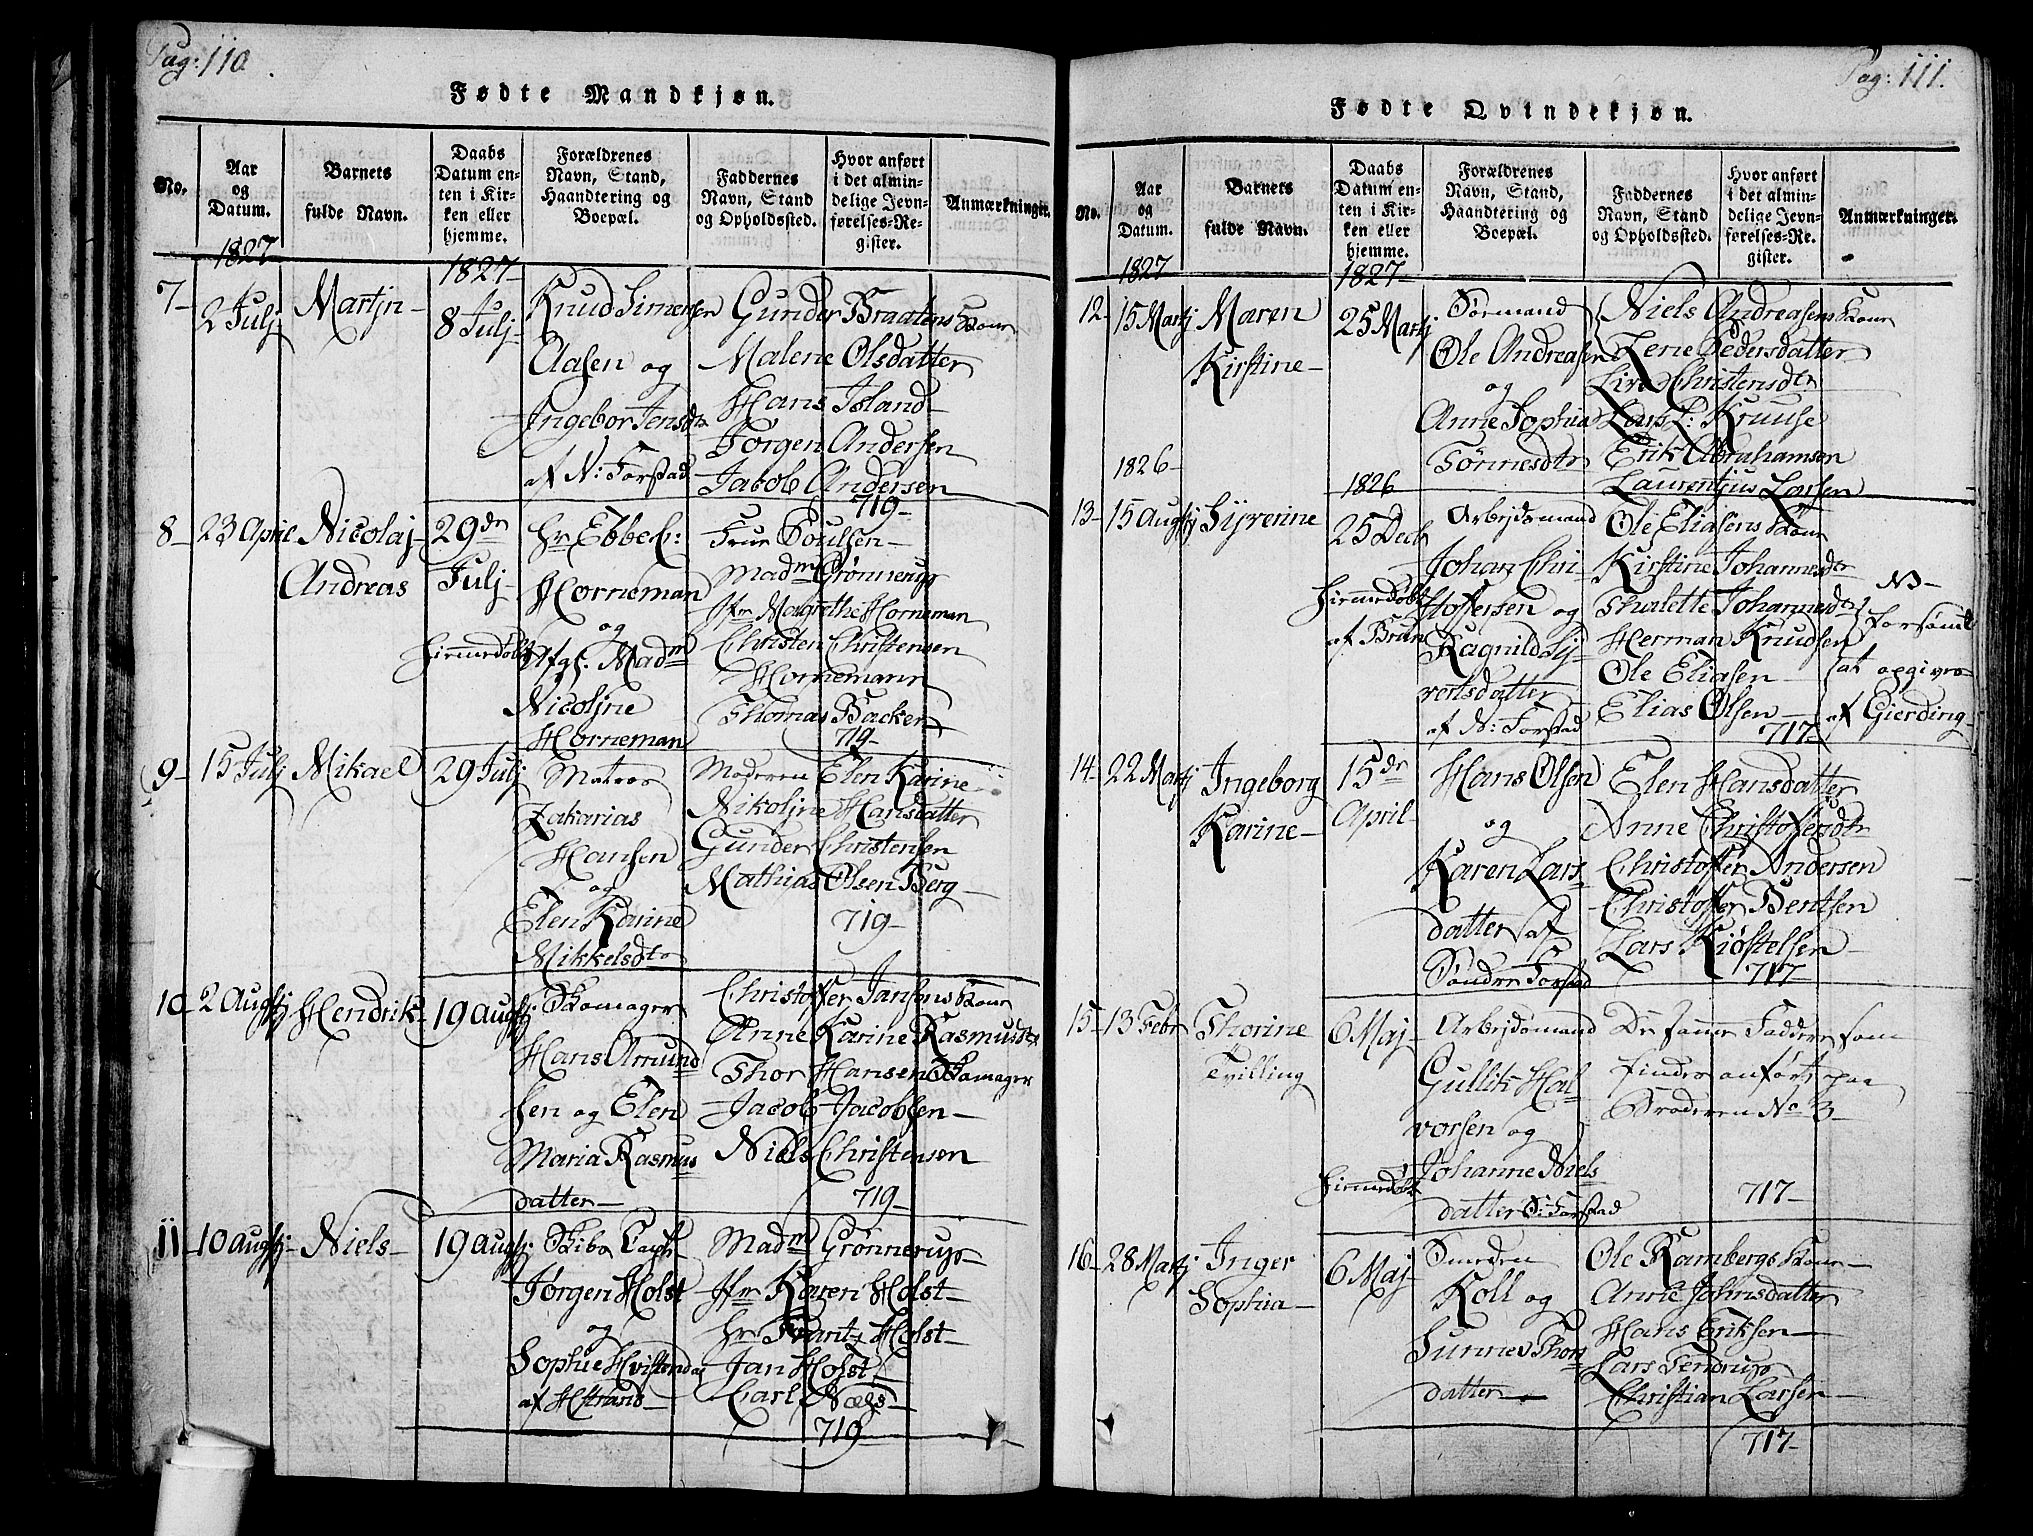 Pag: 110
Fødte Mandkjøn.
No.
Aar
og
Datum.
Barnets
fulde Navn.
Daabs
Datum en-
ten i Kir-
ken eller
hjemme.
Forældrenes
Navn, Stand,
Haandtering og
Boepæl.
Faddernes
Navn, Stand
og Opholdssted.
Hvor anført
i det almin-
delige Jevn-
førelses-Re-
gister.
Anmærkninger.
1827
1827
7
2 Julj
Martjn
8 Julj
Knud Simensen
Aasen og
Ingebor Jensdtr
af N: Torstad
Gunder Braatens Kone
Malene Olsdatter
Hans Island
Jørgen Andersen
Jakob Andersen
719
8
23 April
Nicolaj
Andreas
29de
Julj
Hiemmedøbt
Hr Ebbe
Horneman
og
Afgl. Madm
Nicoljne
Horneman
Frue Poulsen
Madm Grønnerup
Jfr Magrethe Horneman
Christen Christensen
Hornemann
Thomas Backer
719
9
15 Julj
Mikael
29 Julj
Matros
Zakarias
Hansen
og
Elen Karine
Mikkelsdtr
Moderen Elen Karine
Nikoljne Hansdatter
Gunder Christensen
Mathias Olsen Berg
719
10
2 Augstj
Hendrik
19 Augstj
Skomager
Hans Amund
sen og Elen
Maria Rasmus
datter
Christoffer Jansens Kone
Anne Karine Rasmusdtr
Thor Hansen Skomager
Jacob Jacobsen
Niels Christensen
719
11
10 Augstj
Niels
19 Augstj
Skibs Capt:
Jørgen Holst
og
Sophie Hvistendal
af Hstrand
Madm Grønnerup
Jfr Karen Holst
Hr Frantz Holst
Jan Holst
Carl Næss
719
Pag: 111.
Fødte Qvindekjøn.
No.
Aar
og
Datum.
Barnets
fulde Navn.
Daabs
Datum en-
ten i Kir-
ken eller
hjemme.
Forældrenes
Navn, Stand,
Haandtering og
Boepæl.
Faddernes
Navn, Stand
og Opholdssted.
Hvor anført
i det almin-
delige Jevn-
førelses-Re-
gister.
Anmærkninger.
1827
1827
12
15 Martj
Maren
Kirstine
25 Martj
Sømand
Ole Andreasen
og
Anne Sophia
Tønnesdtr
Niels Andreasens Kone
Lene Pedersdatter
Christensdtr
Lars P: Kruuse
Erik Abrahamsen
Laurentjus Larsen
1826
1826
13
15 Augstj
Sijverine
25 Decb
Hiemmedøbt
af Brun
Arbejdsmand
Johan Chri
stoffersen og
Ragnild Sy
vertsdatter
af N: Torstad
Ole Eliasens Kone
Kirstine Johannesdtr
Thalette Johannesdtr
Herman Knudsen
Ole Eliasen
Elias Olsen
717
NB
Forsømt
at opgives
af Gierding
14
22 Martj
Ingeborg
Karine
15de
April
Hans Olsen
og
Karen Lars
datter af
Søndre Torstad
Elen Hansdatter
Anne Christofersdtr
Christoffer Andersen
Christoffer Bentsen
Lars Kiøstelsen
717
15
13 Febr
Thorine
Tvilling
6 Maj
Hiemmedøbt
Arbejdsmand
Gullik Hal
vorsen og
Johanne Niels
datter S: Torstad
De samme Faddere som
findes anført paa
Broderen No 3
717
16
28 Martj
Inger
Sophia
6 Maj
Smeden
Koll og
Sunnev Thors
datter
Ole Rambergs Kone
Anne Johnsdatter
Hans Eriksen
Lars Tendrup
Christian Larsen
717